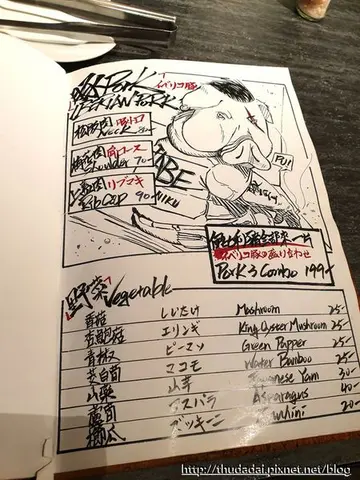 Pork
IBERIAN PORK
イベリコ豚
松阪肉 豚トロ
Neck
梅花肉 肩ロース
Shoulder 70-
リブマキ
RibCap 90-
FU!
イベリコ豚の盛り合わせ
Pork 3 Combo 199-
野菜 Vegetable
香菇 しいたけ Mushroom 25-
杏鮑菇 エリンギ King Oyster Mushroom 25-
青椒 ピーマン Green Papper 25-
茭白筍 マコモ Water Bamboo 25-
山藥 山芋 Japanese Yam 30-
蘆筍 アスパラ Asparagus 40-
櫛瓜 ズッキーニ 20-
http://thudadai.pixnet.net/blog